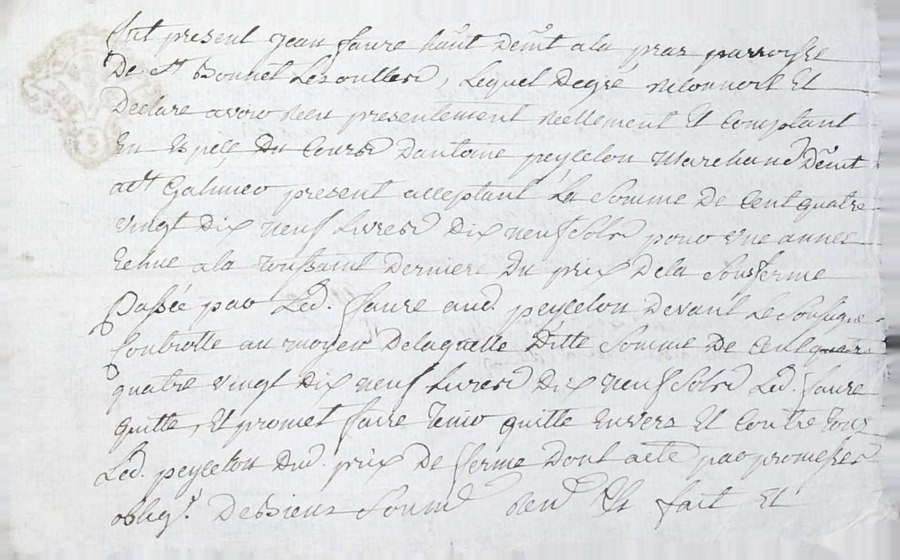 fut present Jean faure hab.t dem.t a la praz parroisse
De St Bonnet Lesoulles, Lequel De gré reconnoit Et
Declare avoir Receu presentement reellement Et Comptant
En Espece Du Cours Dantoine peycelon Marchand Dem.t
a St Galmier present acceptant La Somme De Cent quatre
vingt Dix neuf Livres Dix neuf Sols pour une année
Echue a la Toussaint Derniere Du prix De la Sousferme
Passée par Led. faure aud. peycelon Devant Le Soussigne
Controlle au moyen De laquelle Ditte Somme De Cent
quatre vingt Dix neuf Livres Dix neuf Sols Led. faure
quitte, Et promet faire Tenir quitte Envers Et Contre Tous
Led. peycelon Dud. prix De ferme Dont acte par promesses
oblig.s De Biens Soum.s Renon.s &a fait Et